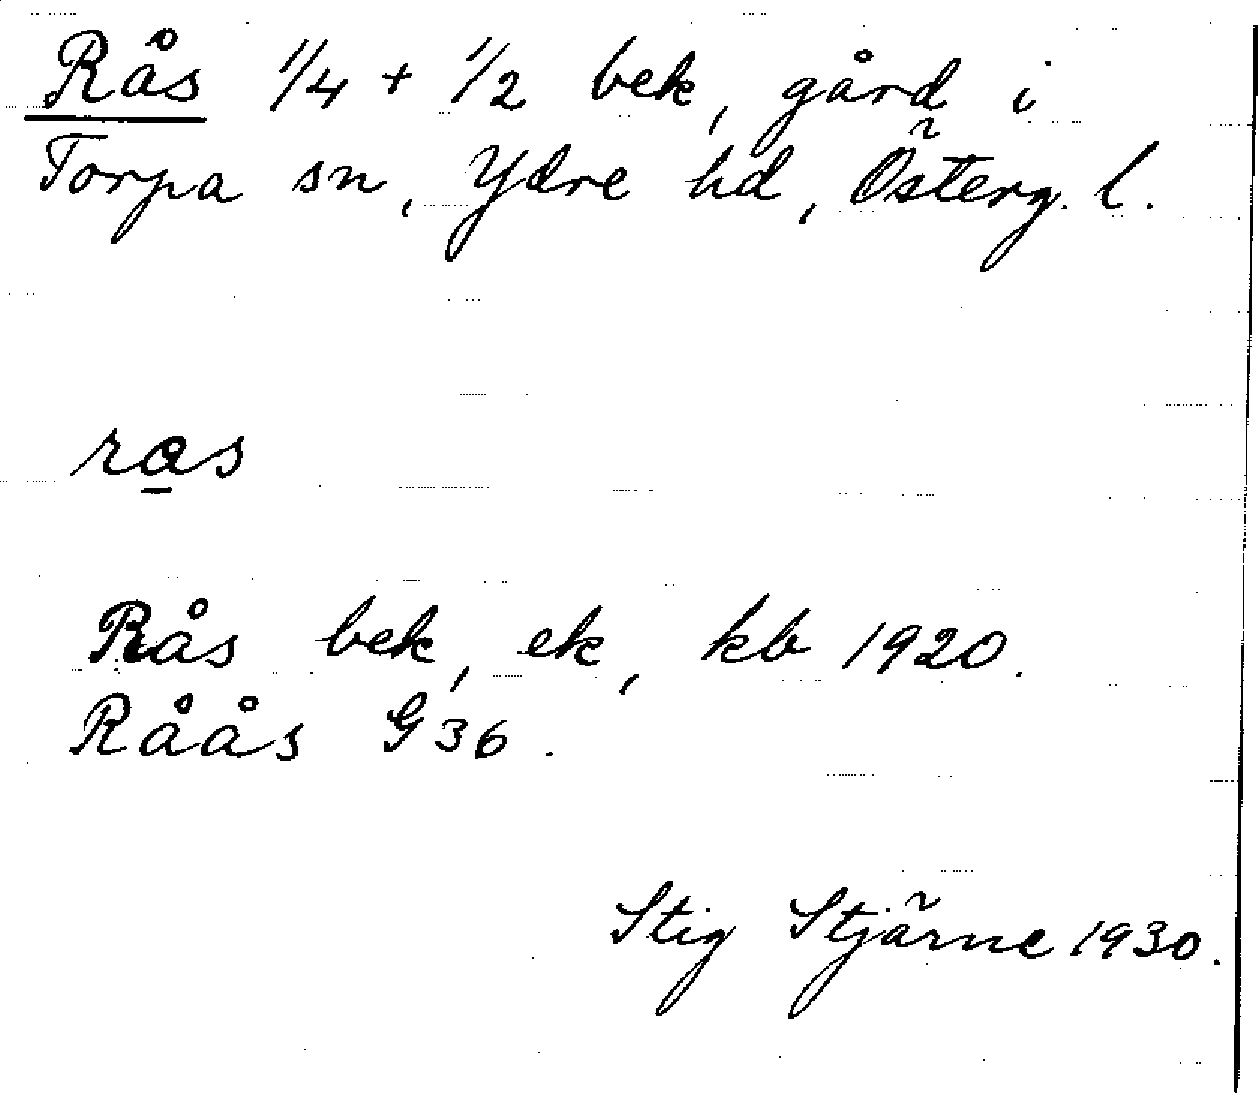 Rås 1/4 + 1/2 bek, gård i
Torpa sn, Ydre hd, Österg. l.
ras
Rås bek, ek, kb 1920.
Råås G 36.
Stig Stjärne 1930.